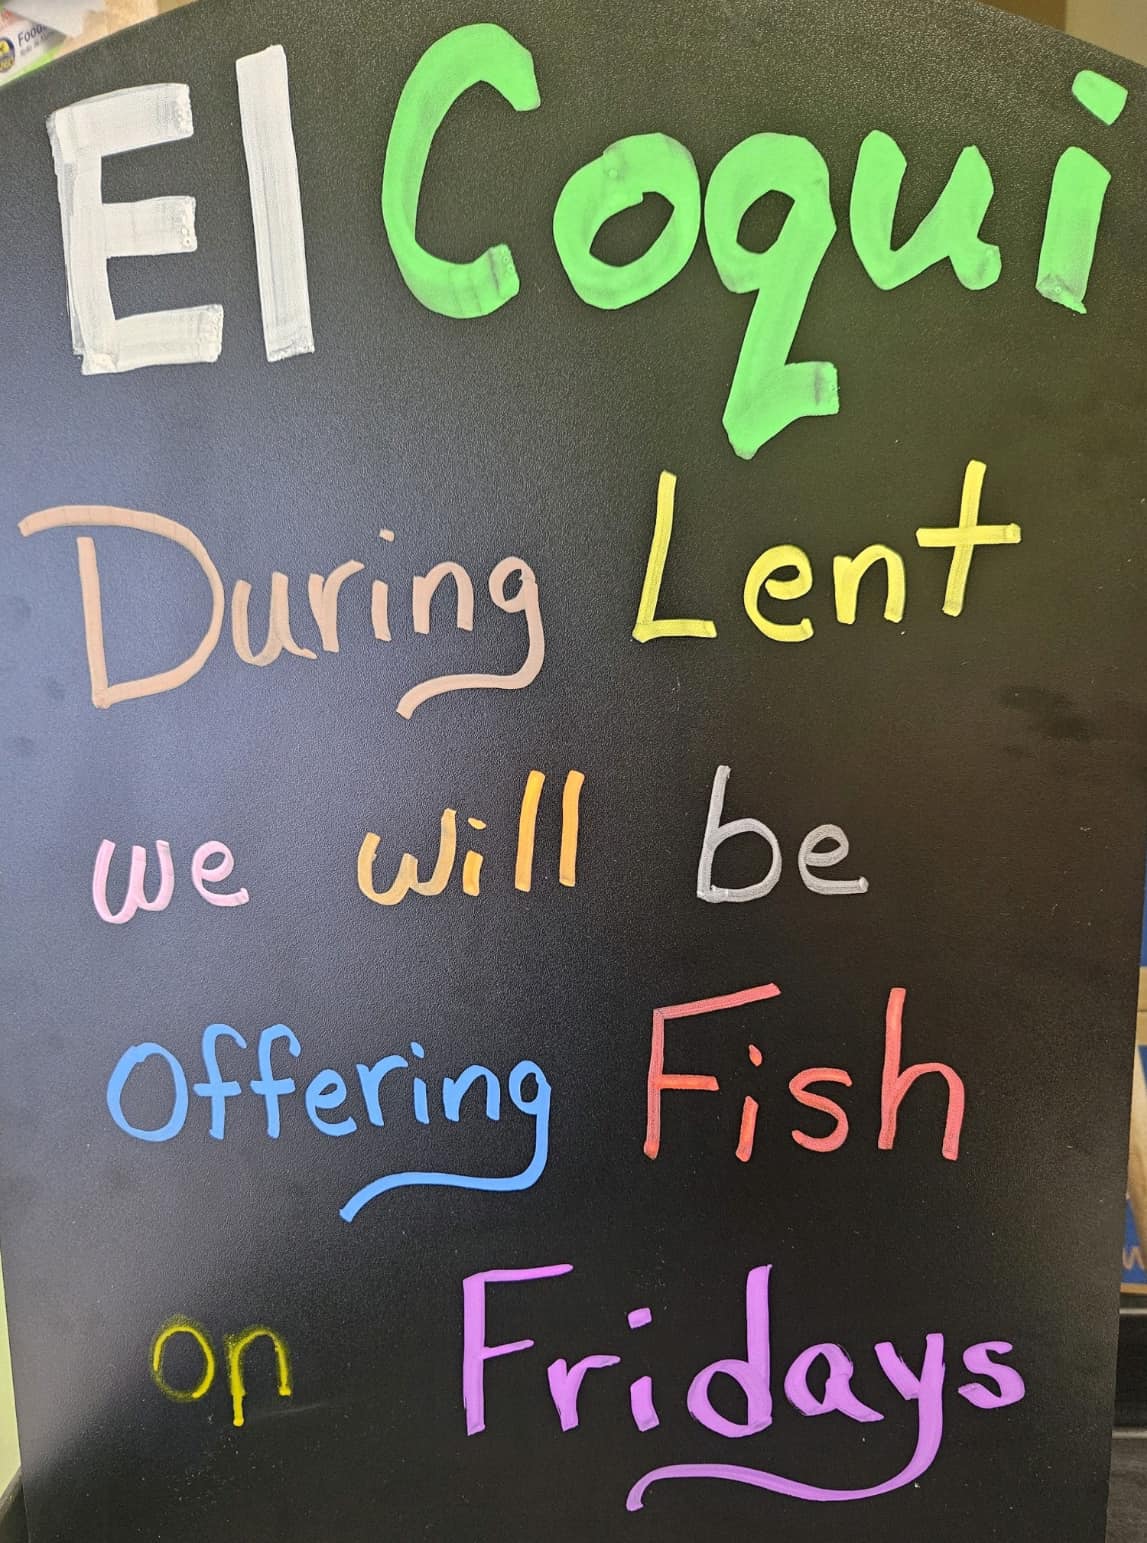 El Coqui
During Lent
we will be
Offering Fish
on Fridays